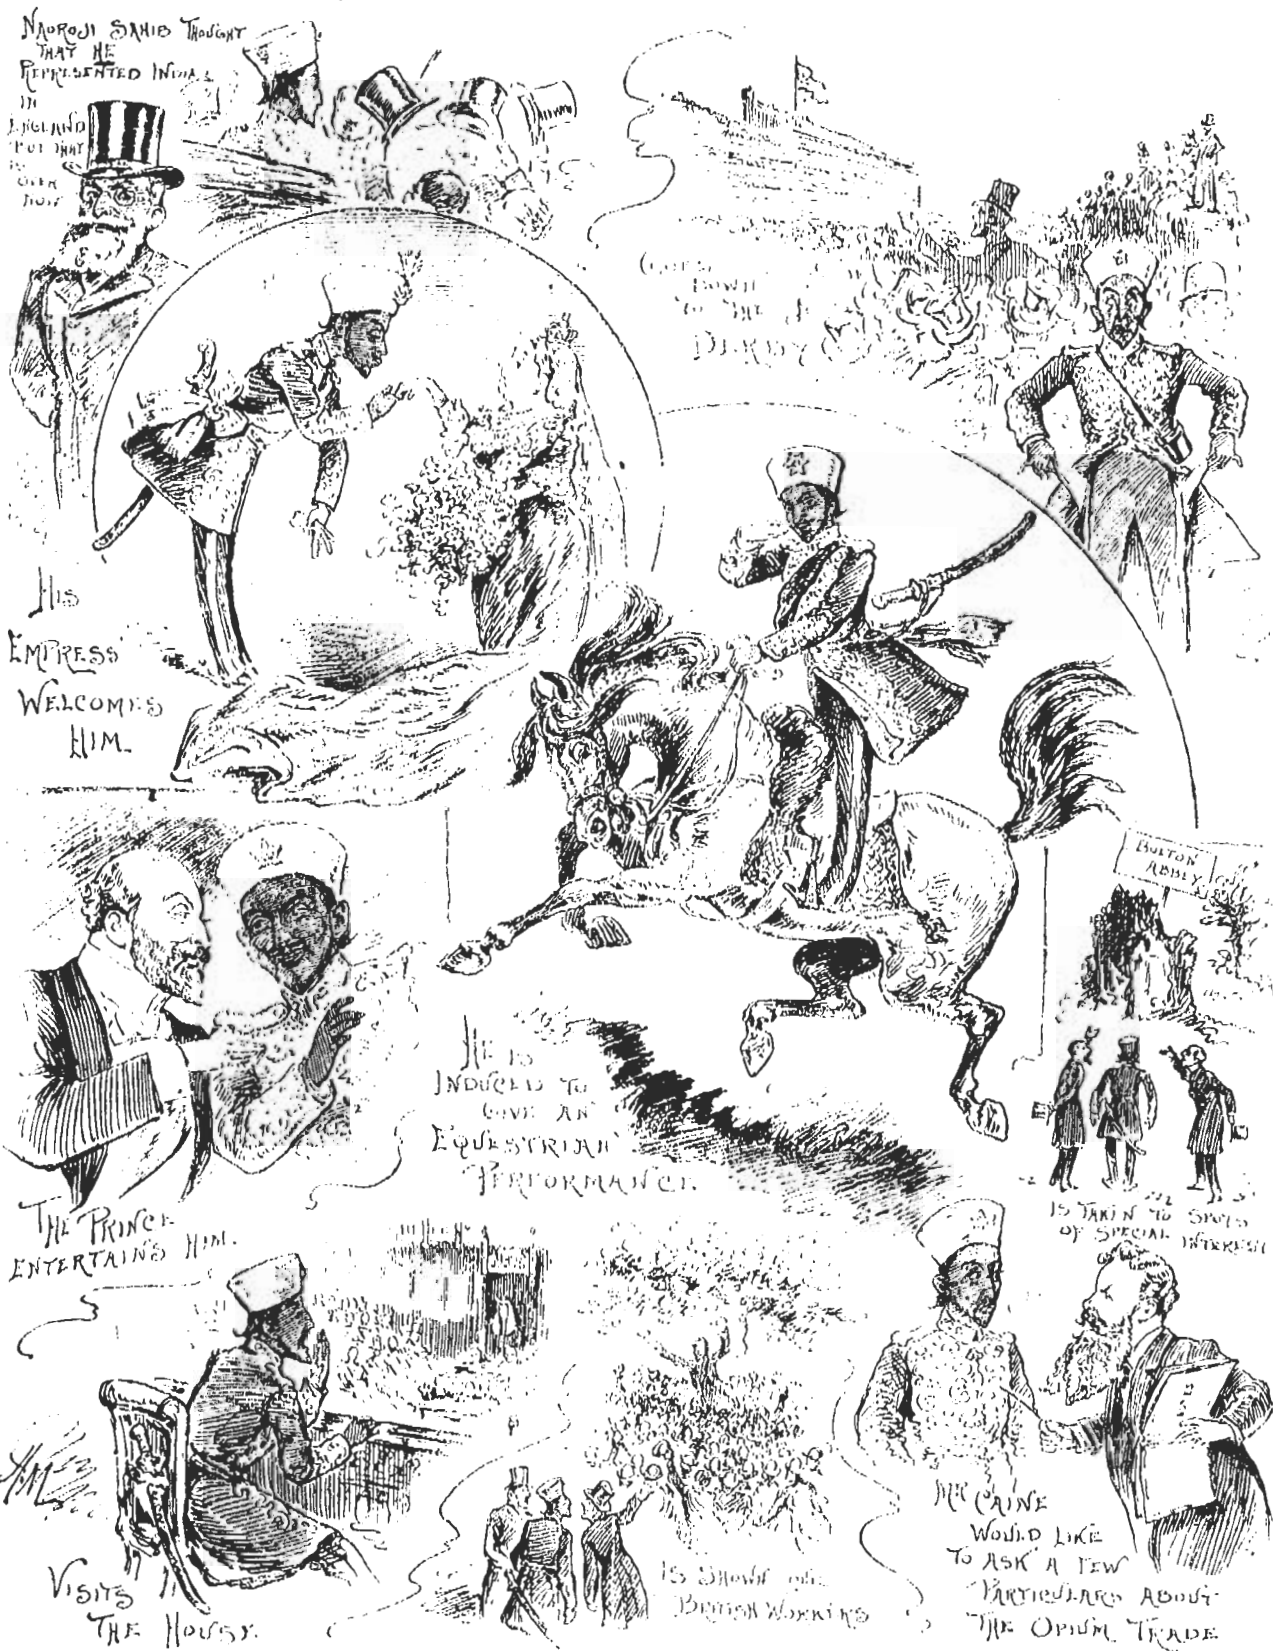 NAOROJI SAHIB THOUGHT
THAT HE
REPRESENTED INDIA
IN
ENGLAND
BUT THAT
IS
OVER
NOW
GOES
DOWN
TO THE
DERBY
HIS
EMPRESS
WELCOMES
HIM.
BOLTON
ABBEY
THE PRINCE
ENTERTAINS HIM.
HE IS
INDUCED TO
GIVE AN
EQUESTRIAN
PERFORMANCE.
IS TAKEN TO SPOTS
OF SPECIAL INTEREST
VISITS
THE HOUSE.
IS SHOWN OUR
BRITISH WORKERS
MR CAINE
WOULD LIKE
TO ASK A FEW
PARTICULARS ABOUT
THE OPIUM TRADE